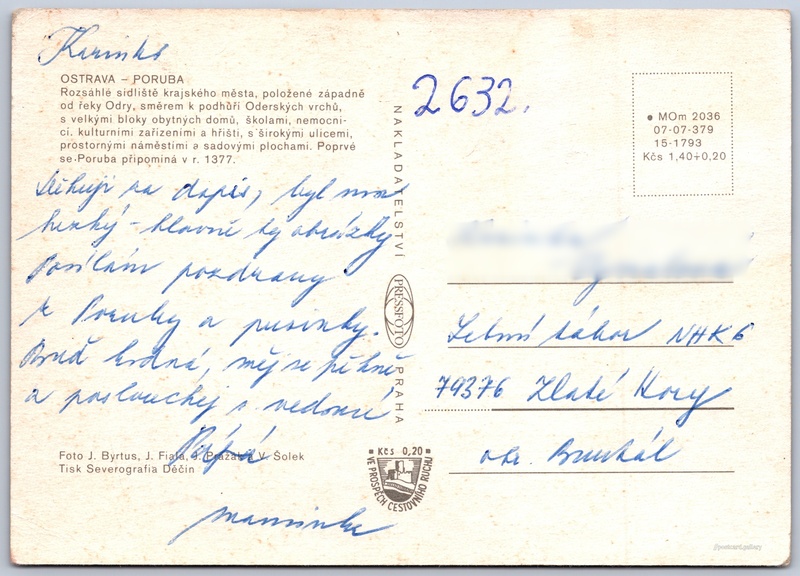 Karinko
OSTRAVA – PORUBA
Rozsáhlé sídliště krajského města, položené západně
od řeky Odry, směrem k podhůří Oderských vrchů,
s velkými bloky obytných domů, školami, nemocni-
cí, kulturními zařízeními a hřišti, s širokými ulicemi,
prostornými náměstími a sadovými plochami. Poprvé
se Poruba připomíná v r. 1377.
Děkuji za dopis, byl moc
hezký – hlavně ty obrázky
Posílám pozdravy
z Poruby a pusinky.
Buď hodná, měj se pěkně
a poslouchej s. vedoucí
maminka
Foto J. Byrtus, J. Fiala, J. Pražák, V. Šolek
Tisk Severografia Děčín
NAKLADATELSTVÍ
PRESSFOTO
PRAHA
Kčs 0,20
VE PROSPĚCH CESTOVNÍHO RUCHU
2632.
MOm 2036
07-07-379
15-1793
Kčs 1,40+0,20
Letní tábor NHKG
79376 Zlaté Hory
okr. Bruntál